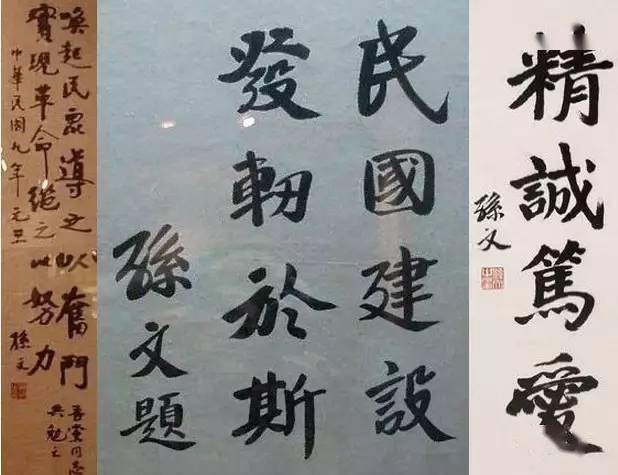 精誠篤愛
孫文
民國建設
發軔於斯
孫文題
喚起民眾導之以奮鬥
實現革命繼之以努力
中華民國九年元旦
孫文
吾黨同志
共勉之